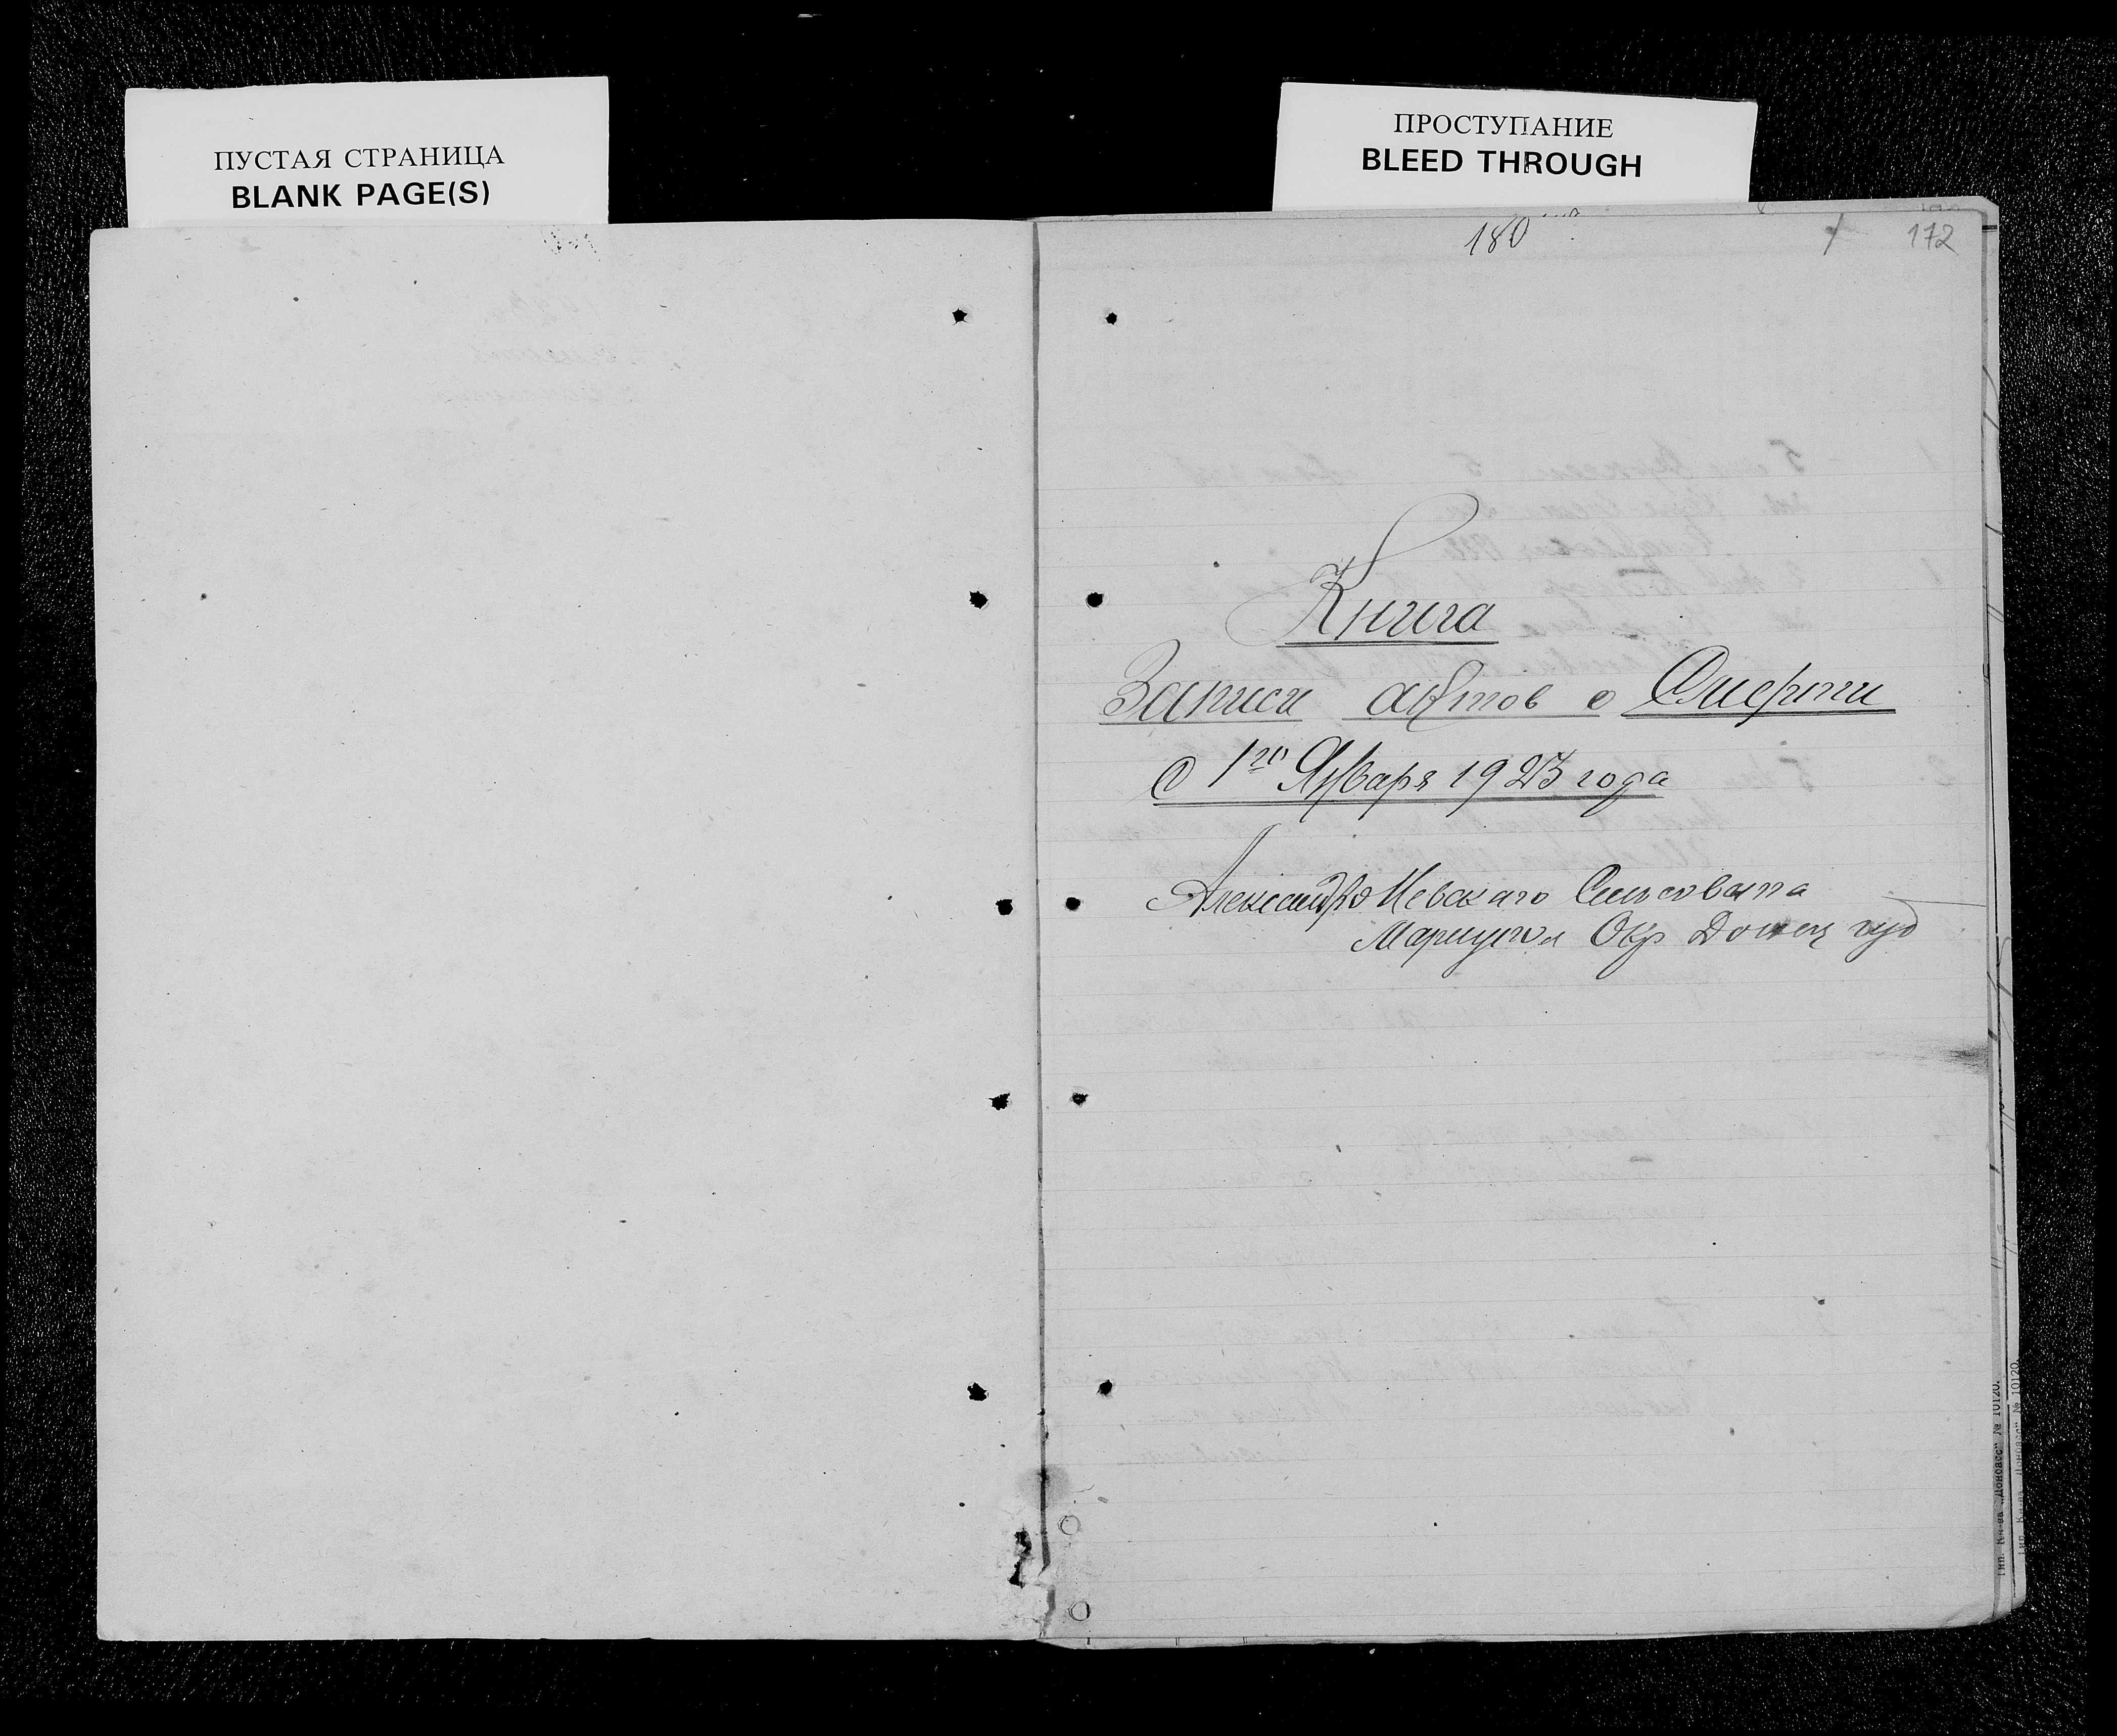 ПУСТАЯ СТРАНИЦА
BLANK PAGE(S)
ПРОСТУПАНИЕ
BLEED THROUGH
180
1 172
Книга
Записи актов о Смерти
С 1го Января 1923 года
Александро Невскаго Сельсовета
Мариупол Окр Донец губ
Тип. Кн-ва „Донбасс“ № 10120.